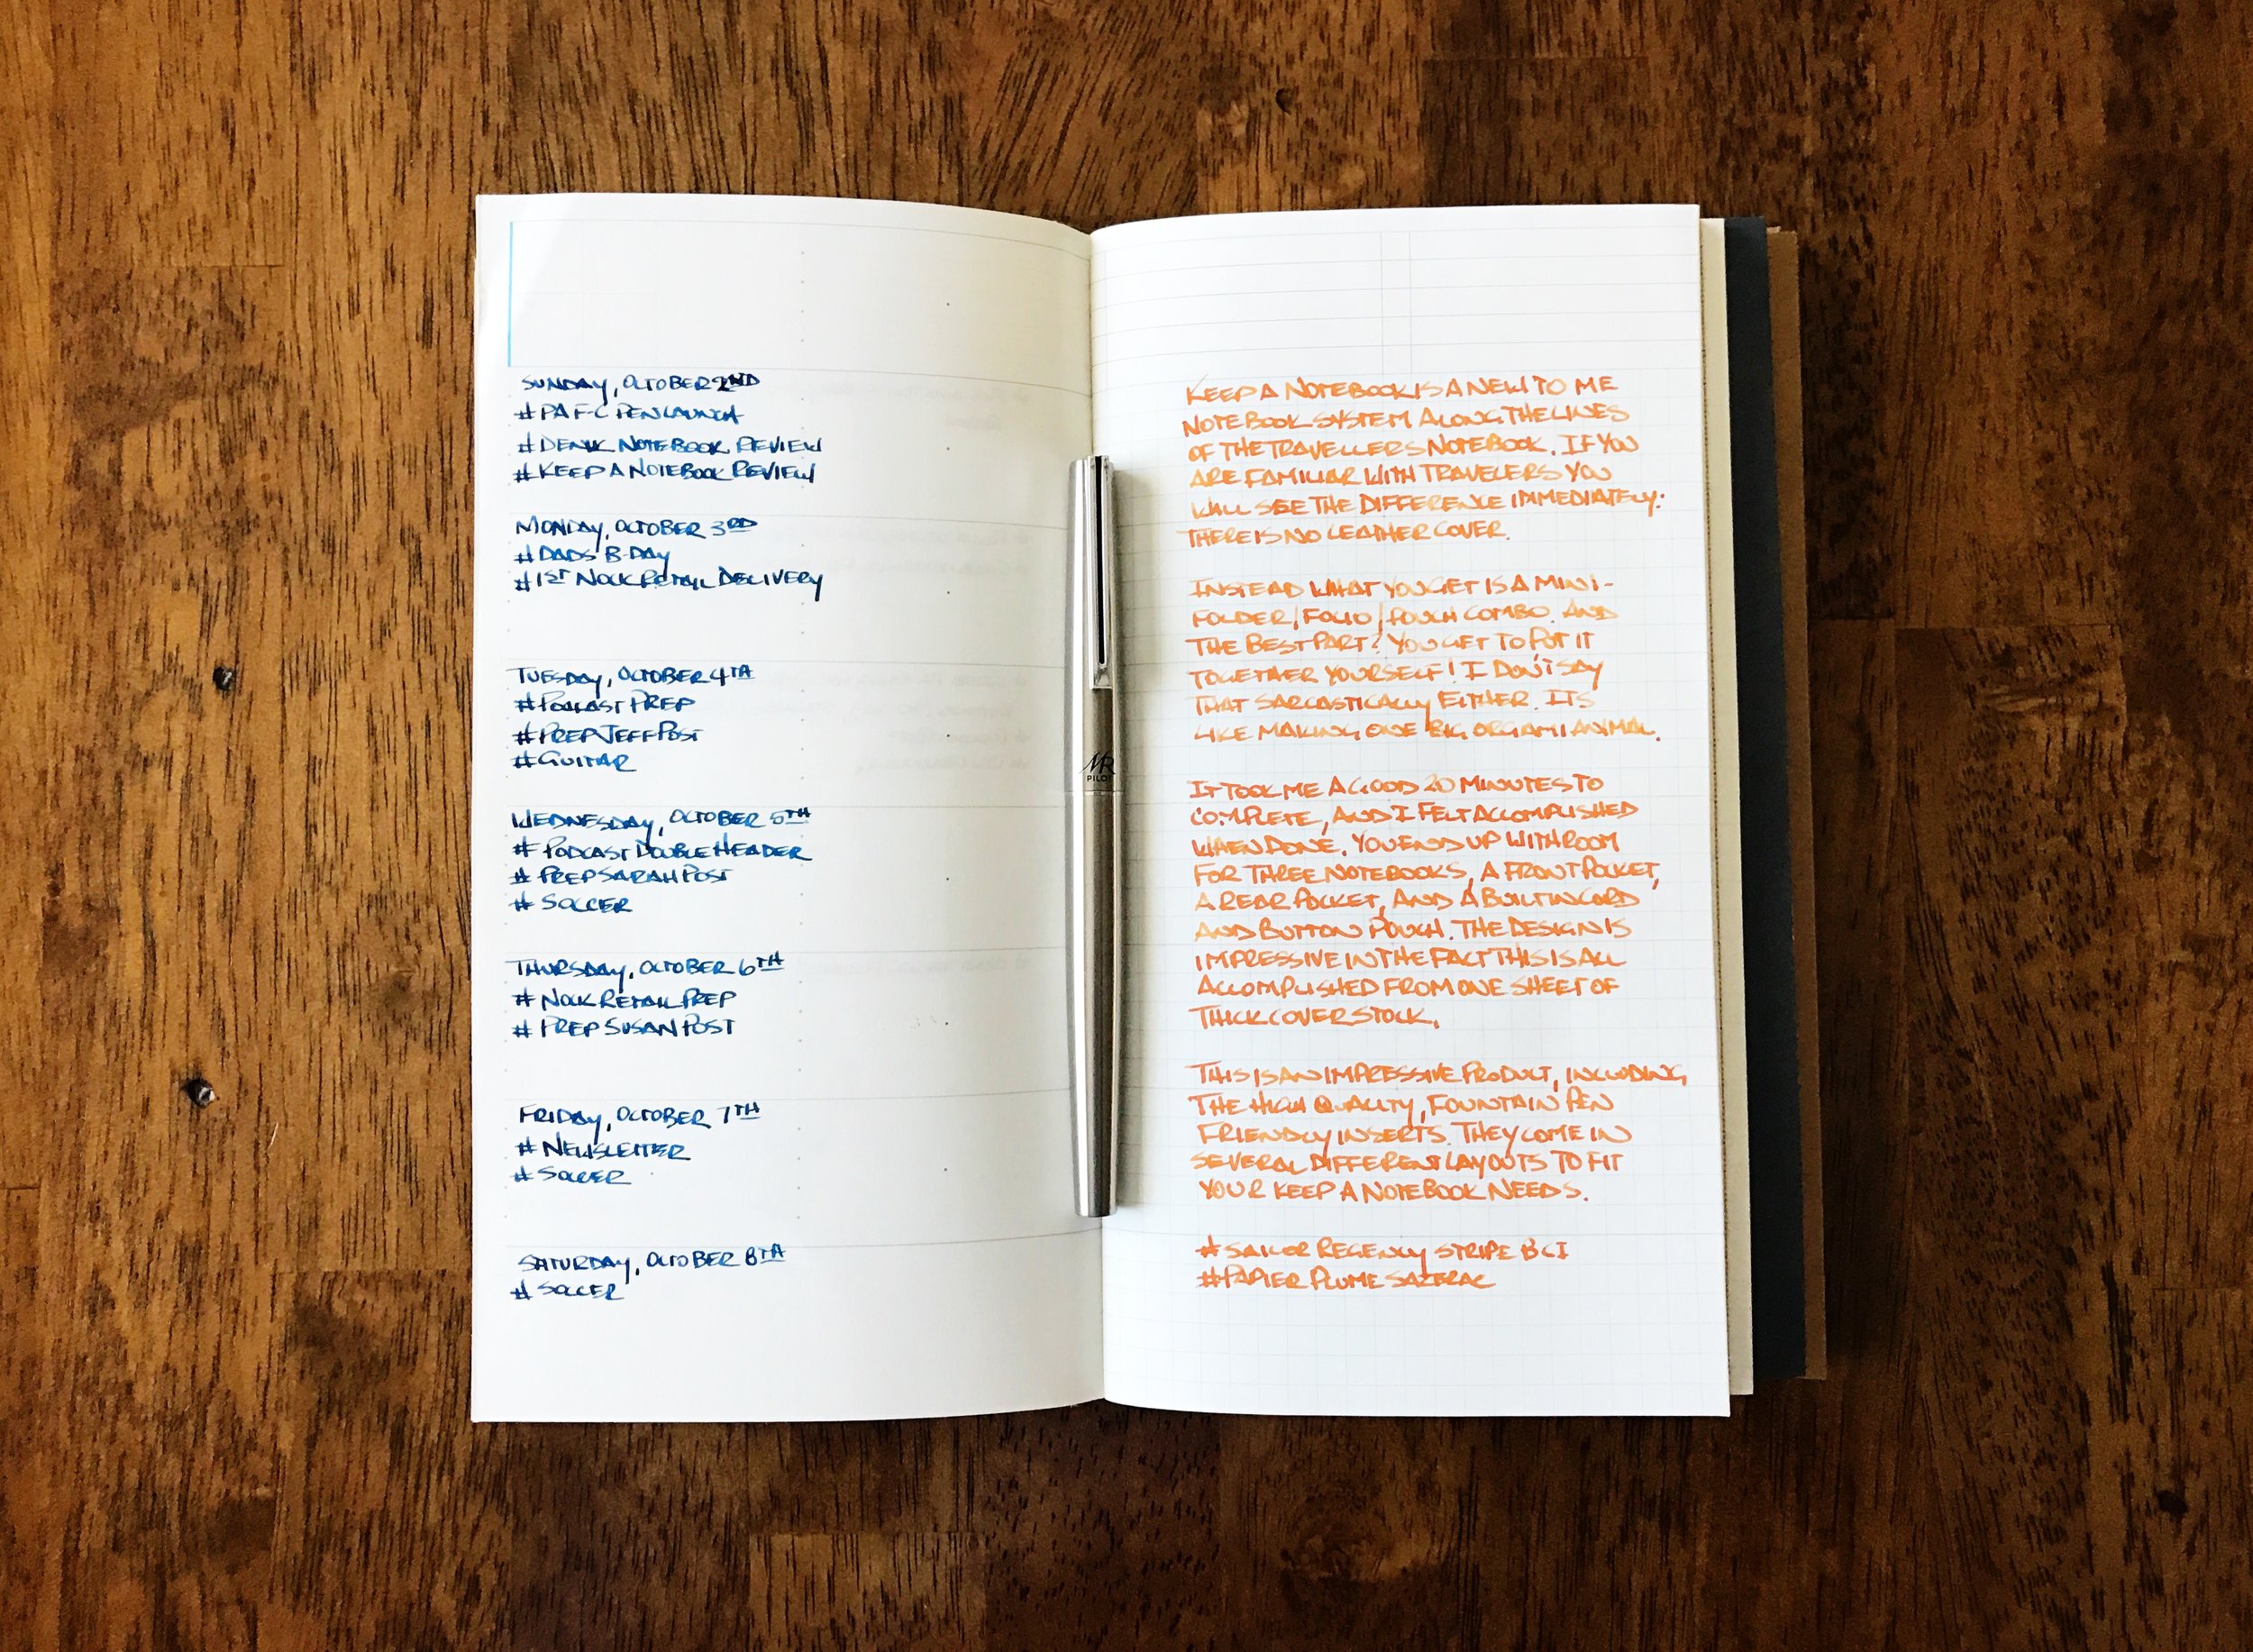 SUNDAY, OCTOBER 2ND
#PA F-C PEN LAUNCH
#DENIK NOTEBOOK REVIEW
#KEEP A NOTEBOOK REVIEW
MONDAY, OCTOBER 3RD
#DADS B-DAY
#1ST NOCK RETAIL DELIVERY
TUESDAY, OCTOBER 4TH
#PODCAST PREP
#PREP JEFF POST
#GUITAR
WEDNESDAY, OCTOBER 5TH
# PODCAST DOUBLE HEADER
# PREP SARAH POST
# SOCCER
THURSDAY, OCTOBER 6TH
# NOCK RETAIL PREP
# PREP SUSAN POST
FRIDAY, OCTOBER 7TH
# NEWSLETTER
# SOCCER
SATURDAY, OCTOBER 8TH
# SOCCER
MR
PILOT
KEEP A NOTEBOOK IS A NEW TO ME
NOTEBOOK SYSTEM ALONG THE LINES
OF THE TRAVELLERS NOTEBOOK. IF YOU
ARE FAMILIAR WITH TRAVELERS YOU
WILL SEE THE DIFFERENCE IMMEDIATELY:
THERE IS NO LEATHER COVER.
INSTEAD WHAT YOU GET IS A MINI-
FOLDER/FOLIO/POUCH COMBO. AND
THE BEST PART? YOU GET TO PUT IT
TOGETHER YOURSELF! I DON'T SAY
THAT SARCASTICALLY EITHER. ITS
LIKE MAKING ONE BIG ORGAMI ANIMAL.
IT TOOK ME A GOOD 20 MINUTES TO
COMPLETE, AND I FELT ACCOMPLISHED
WHEN DONE. YOU END UP WITH ROOM
FOR THREE NOTEBOOKS, A FRONT POCKET,
A REAR POCKET, AND A BUILT IN CORD
AND BUTTON POUCH. THE DESIGN IS
IMPRESSIVE IN THE FACT THIS IS ALL
ACCOMPLISHED FROM ONE SHEET OF
THICK COVER STOCK.
THIS IS AN IMPRESSIVE PRODUCT, INCLUDING
THE HIGH QUALITY, FOUNTAIN PEN
FRIENDLY INSERTS. THEY COME IN
SEVERAL DIFFERENT LAYOUTS TO FIT
YOUR KEEP A NOTEBOOK NEEDS.
#SAILOR REGENCY STRIPE BCI
#PAPIER PLUME SAZERAC